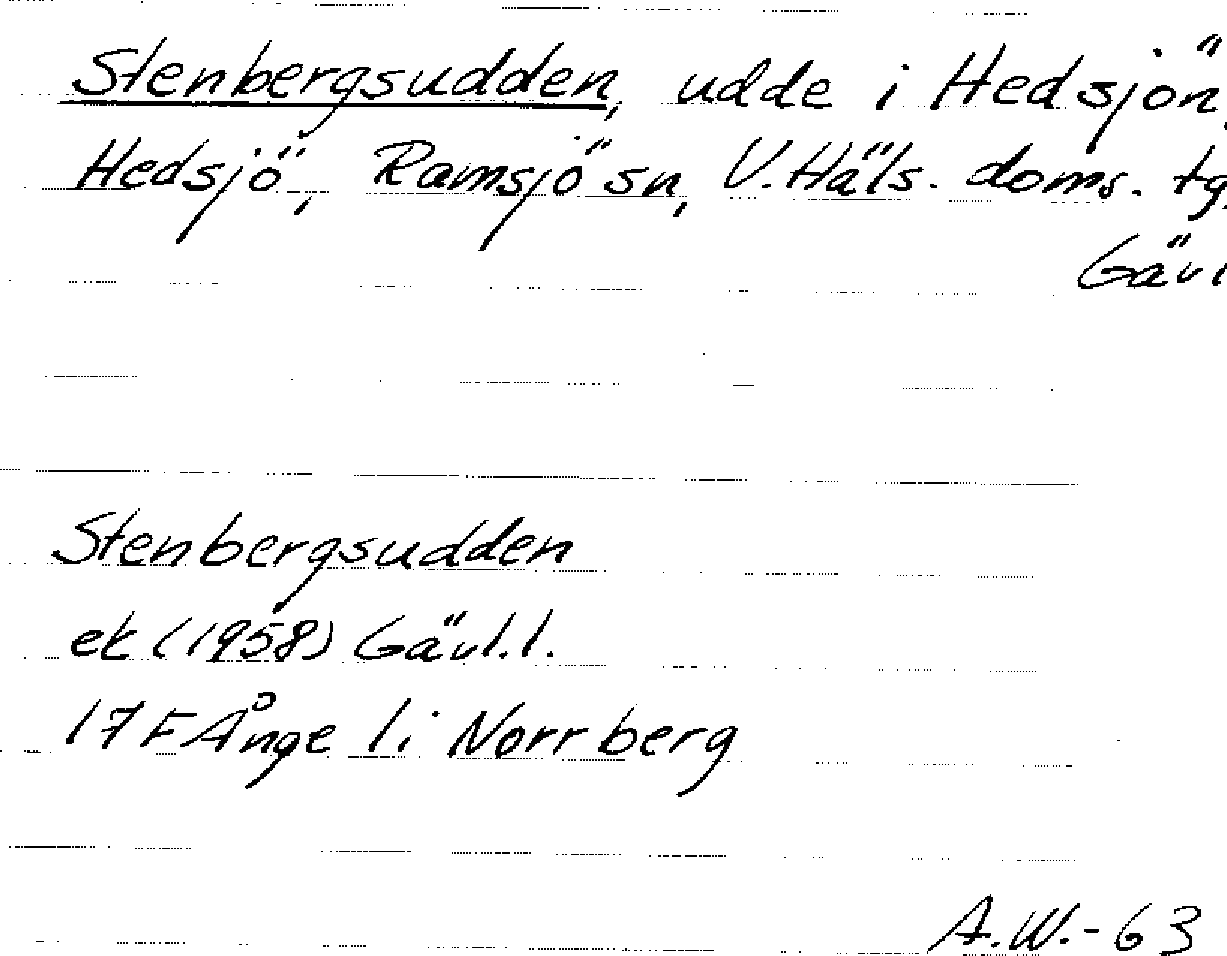 Stenbergsudden, udde i Hedsjön,
Hedsjö, Ramsjö sn, V. Häls. doms. tg,
Gävl
Stenbergsudden
ek (1958) Gävl.l.
17 F Ånge 1i Norrberg
A.W.-63